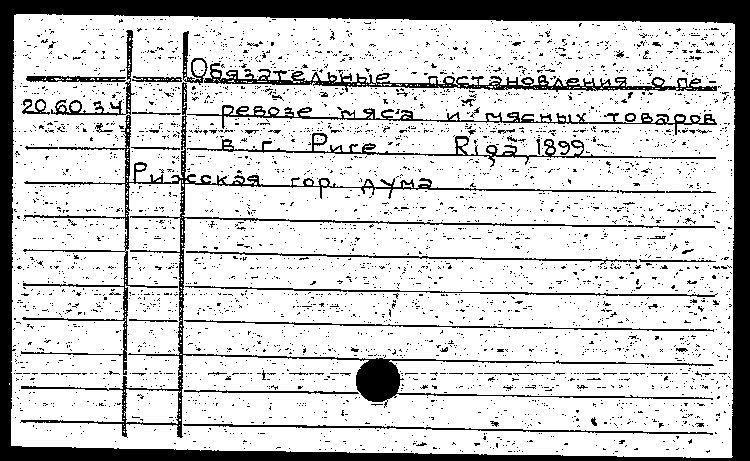 Обязательные постановления о пе-
20.60.34 ревозе мяса и мясных товаров
в г. Риге. Rigā, 1899.
Рижская гор. дума